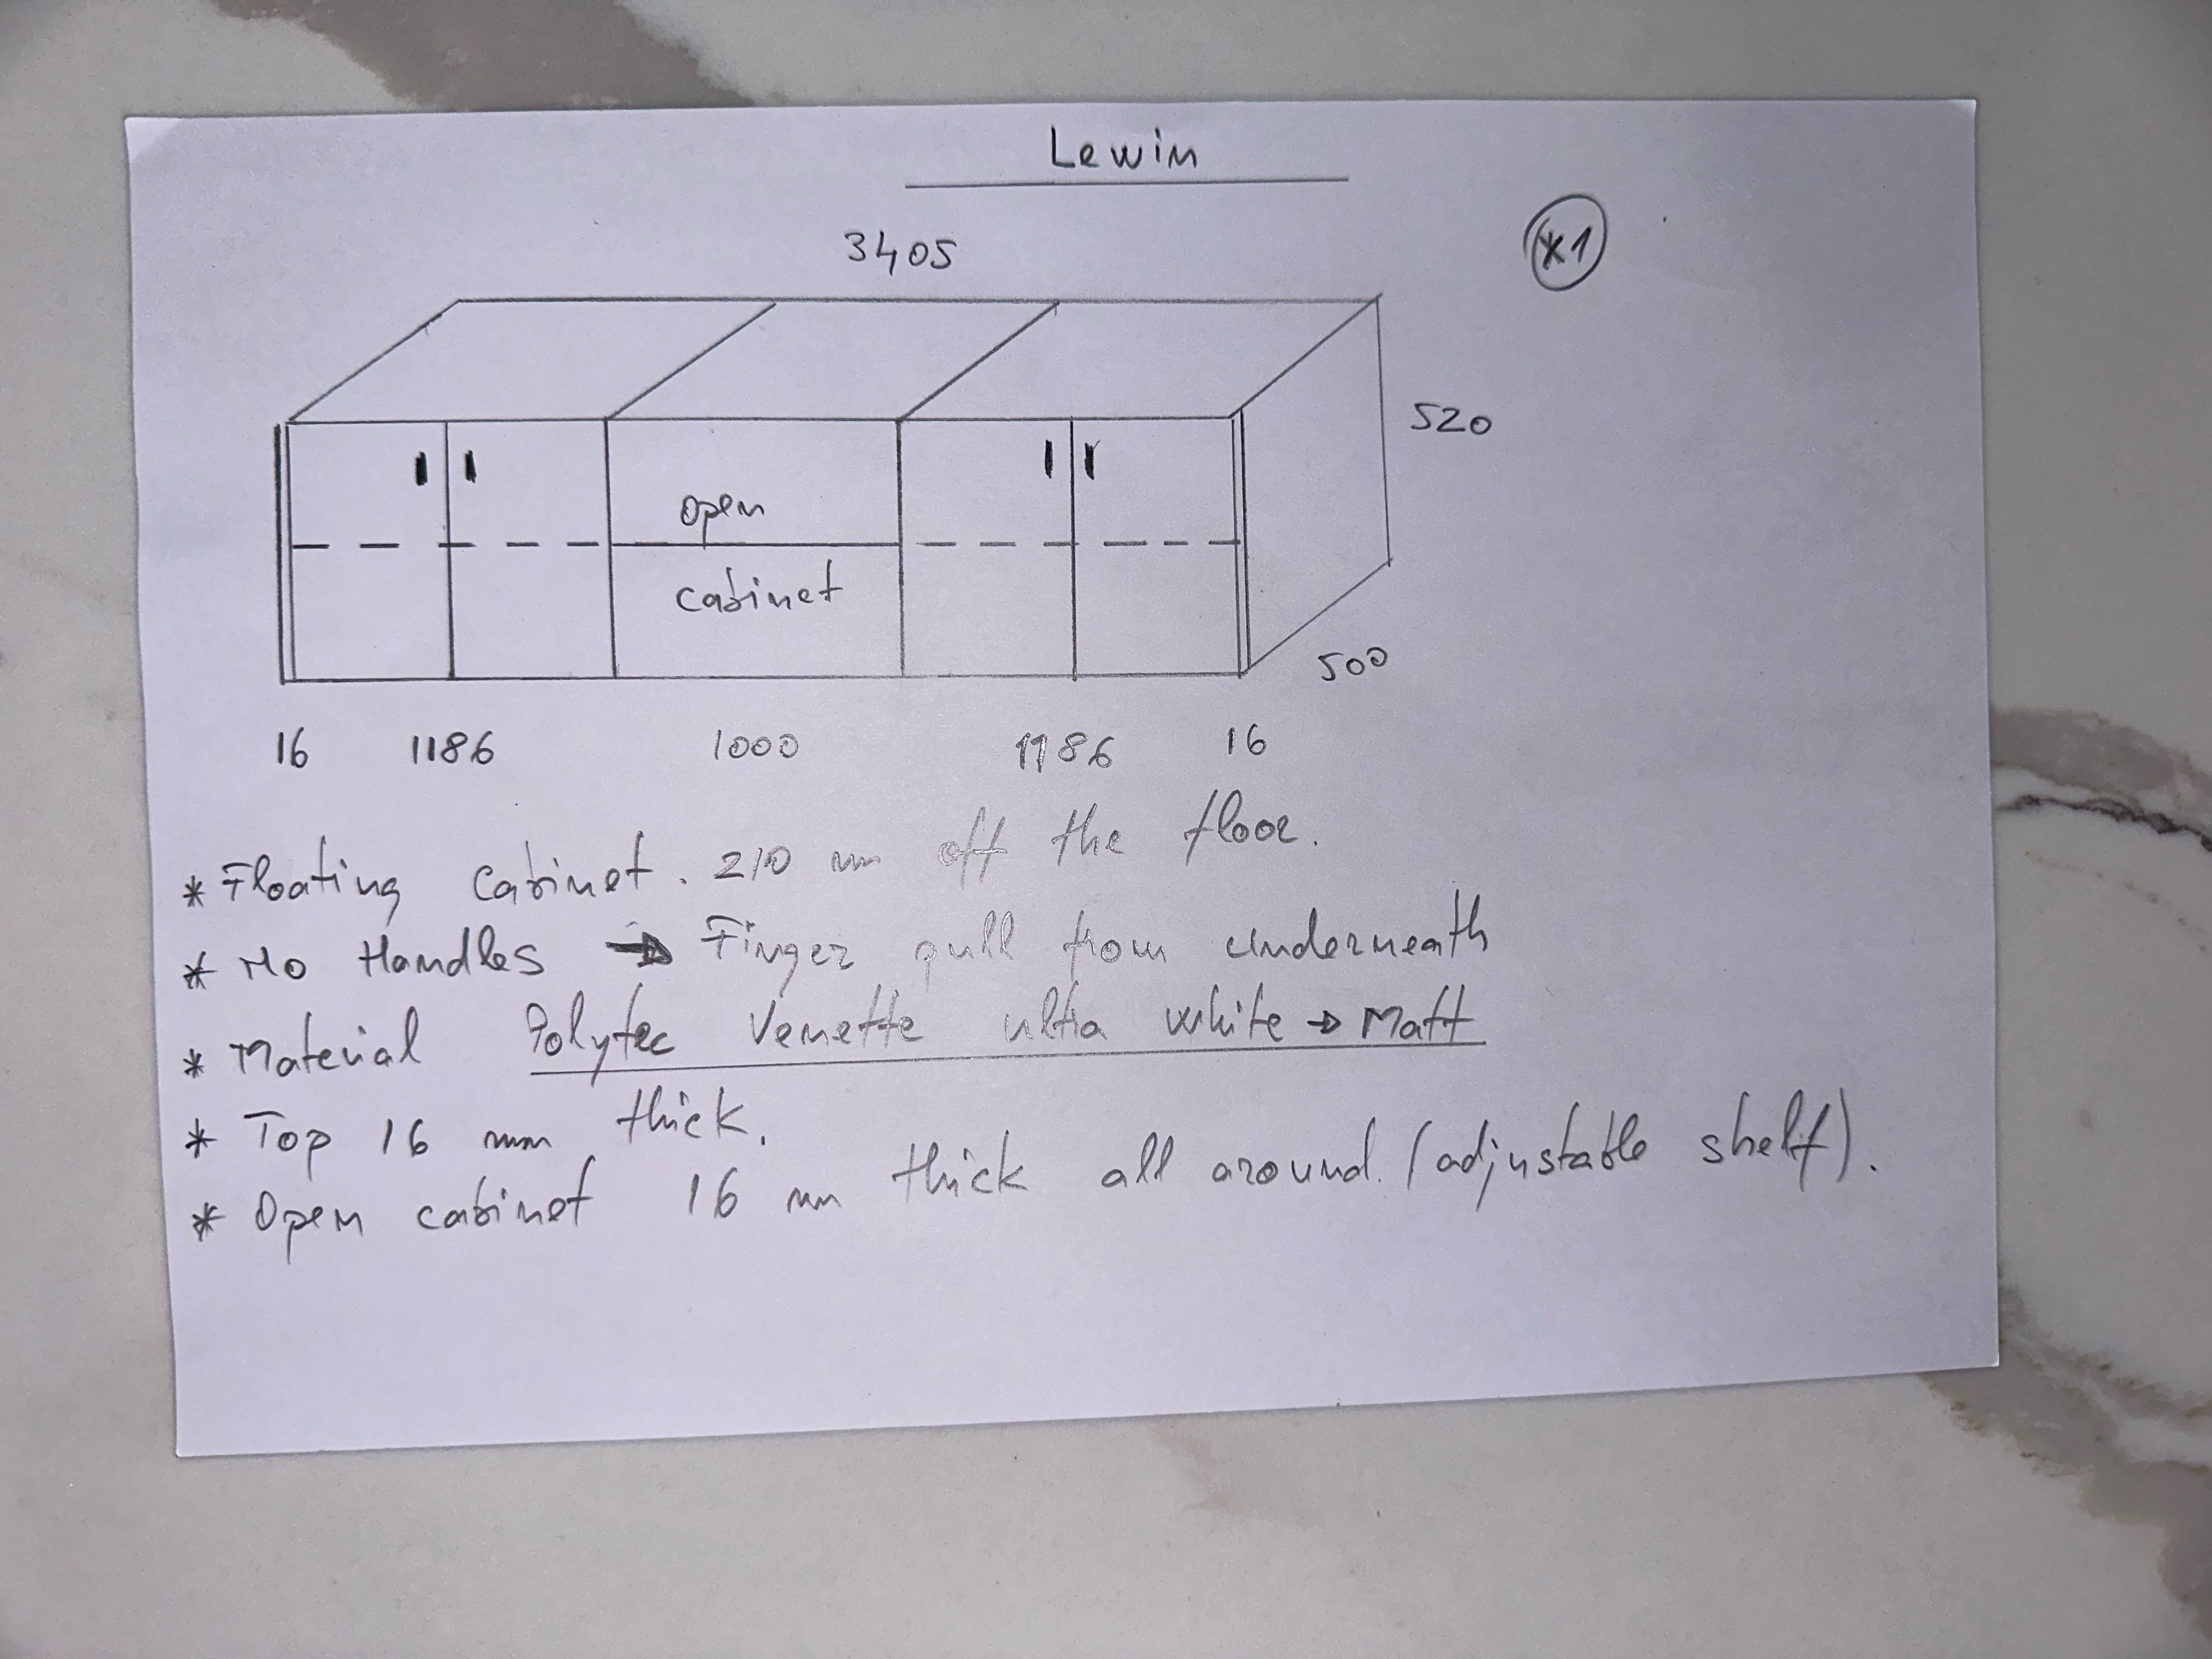 Lewin
3405
x1
520
open
cabinet
500
16 1186 1000 1186 16
* Floating cabinet. 210 mm off the floor.
* No Handles → Finger pull from underneath
* Material Polytec Venette ultra white → Matt
* Top 16 mm thick.
* Open cabinet 16 mm thick all around. (adjustable shelf).